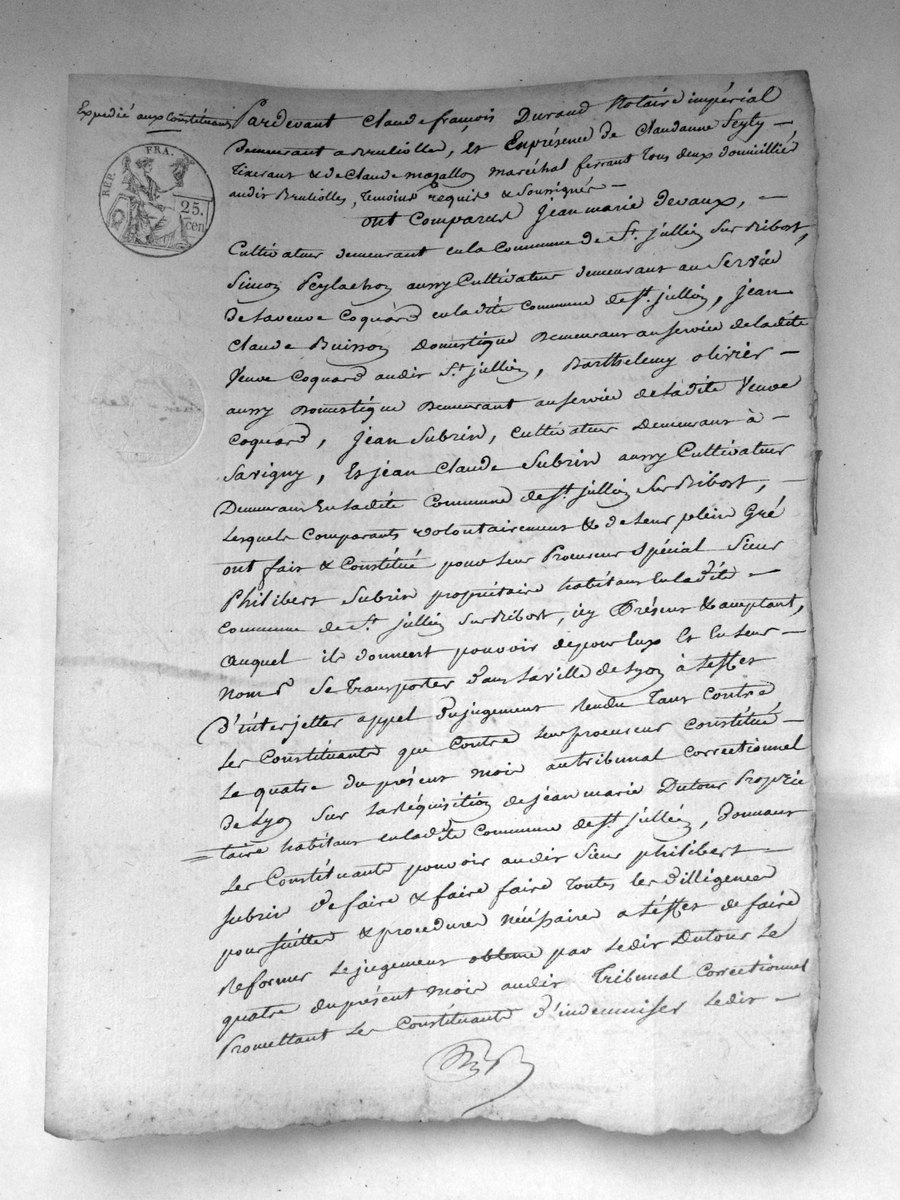 Expedié aux Constituans
REP. FRA.
25. cen
Pardevant Claude françois Durand Notaire impérial
Demeurant a Brulliolle, Et Enprésence de Claudanne Feyly
Tixerant & de Claude mazallon maréchal ferrant Tous deux domiciliés
audit Brulliolles, Temoins requis & Soussignés
ont Comparus Jean marie devaux,
Cultivateur demeurant en la Commune de St. jullien Sur Bibost,
Simon Peylachon aussy Cultivateur demeurant au Service
de la veuve Coquard en ladite Commune de St. jullien, jean
Claude Buisson Domestique Demeurant au service de ladite
Veuve Coquard audit St. jullien, Barthelemy olivier
aussy Domestique Demeurant au service de ladite Veuve
Coquard, jean Subrin, Cultivateur Demeurant à
Savigny, Et jean Claude Subrin aussy Cultivateur
Demeurant En ladite Commune de St. jullien Sur Bibost,
Lesquels Comparants volontairement & de leur plein Gré
ont fait & Constitué pour leur Procureur Spécial Sieur
Philibert Subrin propriétaire habitant En ladite
Commune de St. jullien Sur Bibost, icy Présent & acceptant,
auquel ils donnent pouvoir de pour Eux Et En leur
Noms Se Transporter dans la ville de Lyon à l'effet
D'interjetter appel du jugement Rendu Tant Contre
Les Constituants que Contre leur procureur Constitué
Le quatre du présent mois au tribunal Correctionnel
De Lyon Sur la Réquisition de jean marie Dutour Proprié
=taire habitant en ladite Commune de St. jullien, Donnant
Les Constituants pouvoir audit Sieur philibert
Subrin de faire & faire faire toutes les dilligences
poursuittes & procedures Nécessaires a l'effet de faire
Reformer le jugement obtenu par ledit Dutour Le
quatre du présent mois audit Tribunal Correctionnel
Promettant Les Constituants d'indemniser ledit